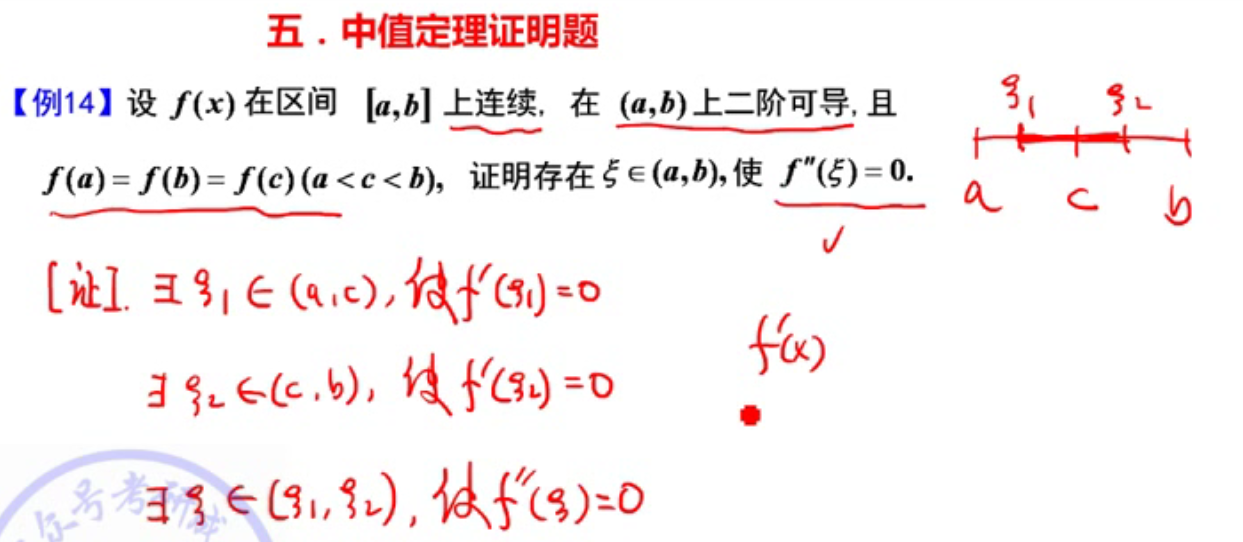 五．中值定理证明题
【例14】设 f(x) 在区间 [a,b] 上连续, 在 (a,b) 上二阶可导, 且
f(a) = f(b) = f(c) (a < c < b), 证明存在 ξ ∈ (a,b), 使 f″(ξ) = 0.
ξ₁ ξ₂
a c b
[证]. ∃ ξ₁ ∈ (a,c), 使 f′(ξ₁) = 0
f′(x)
∃ ξ₂ ∈ (c,b), 使 f′(ξ₂) = 0
∃ ξ ∈ (ξ₁,ξ₂), 使 f″(ξ) = 0
号考研